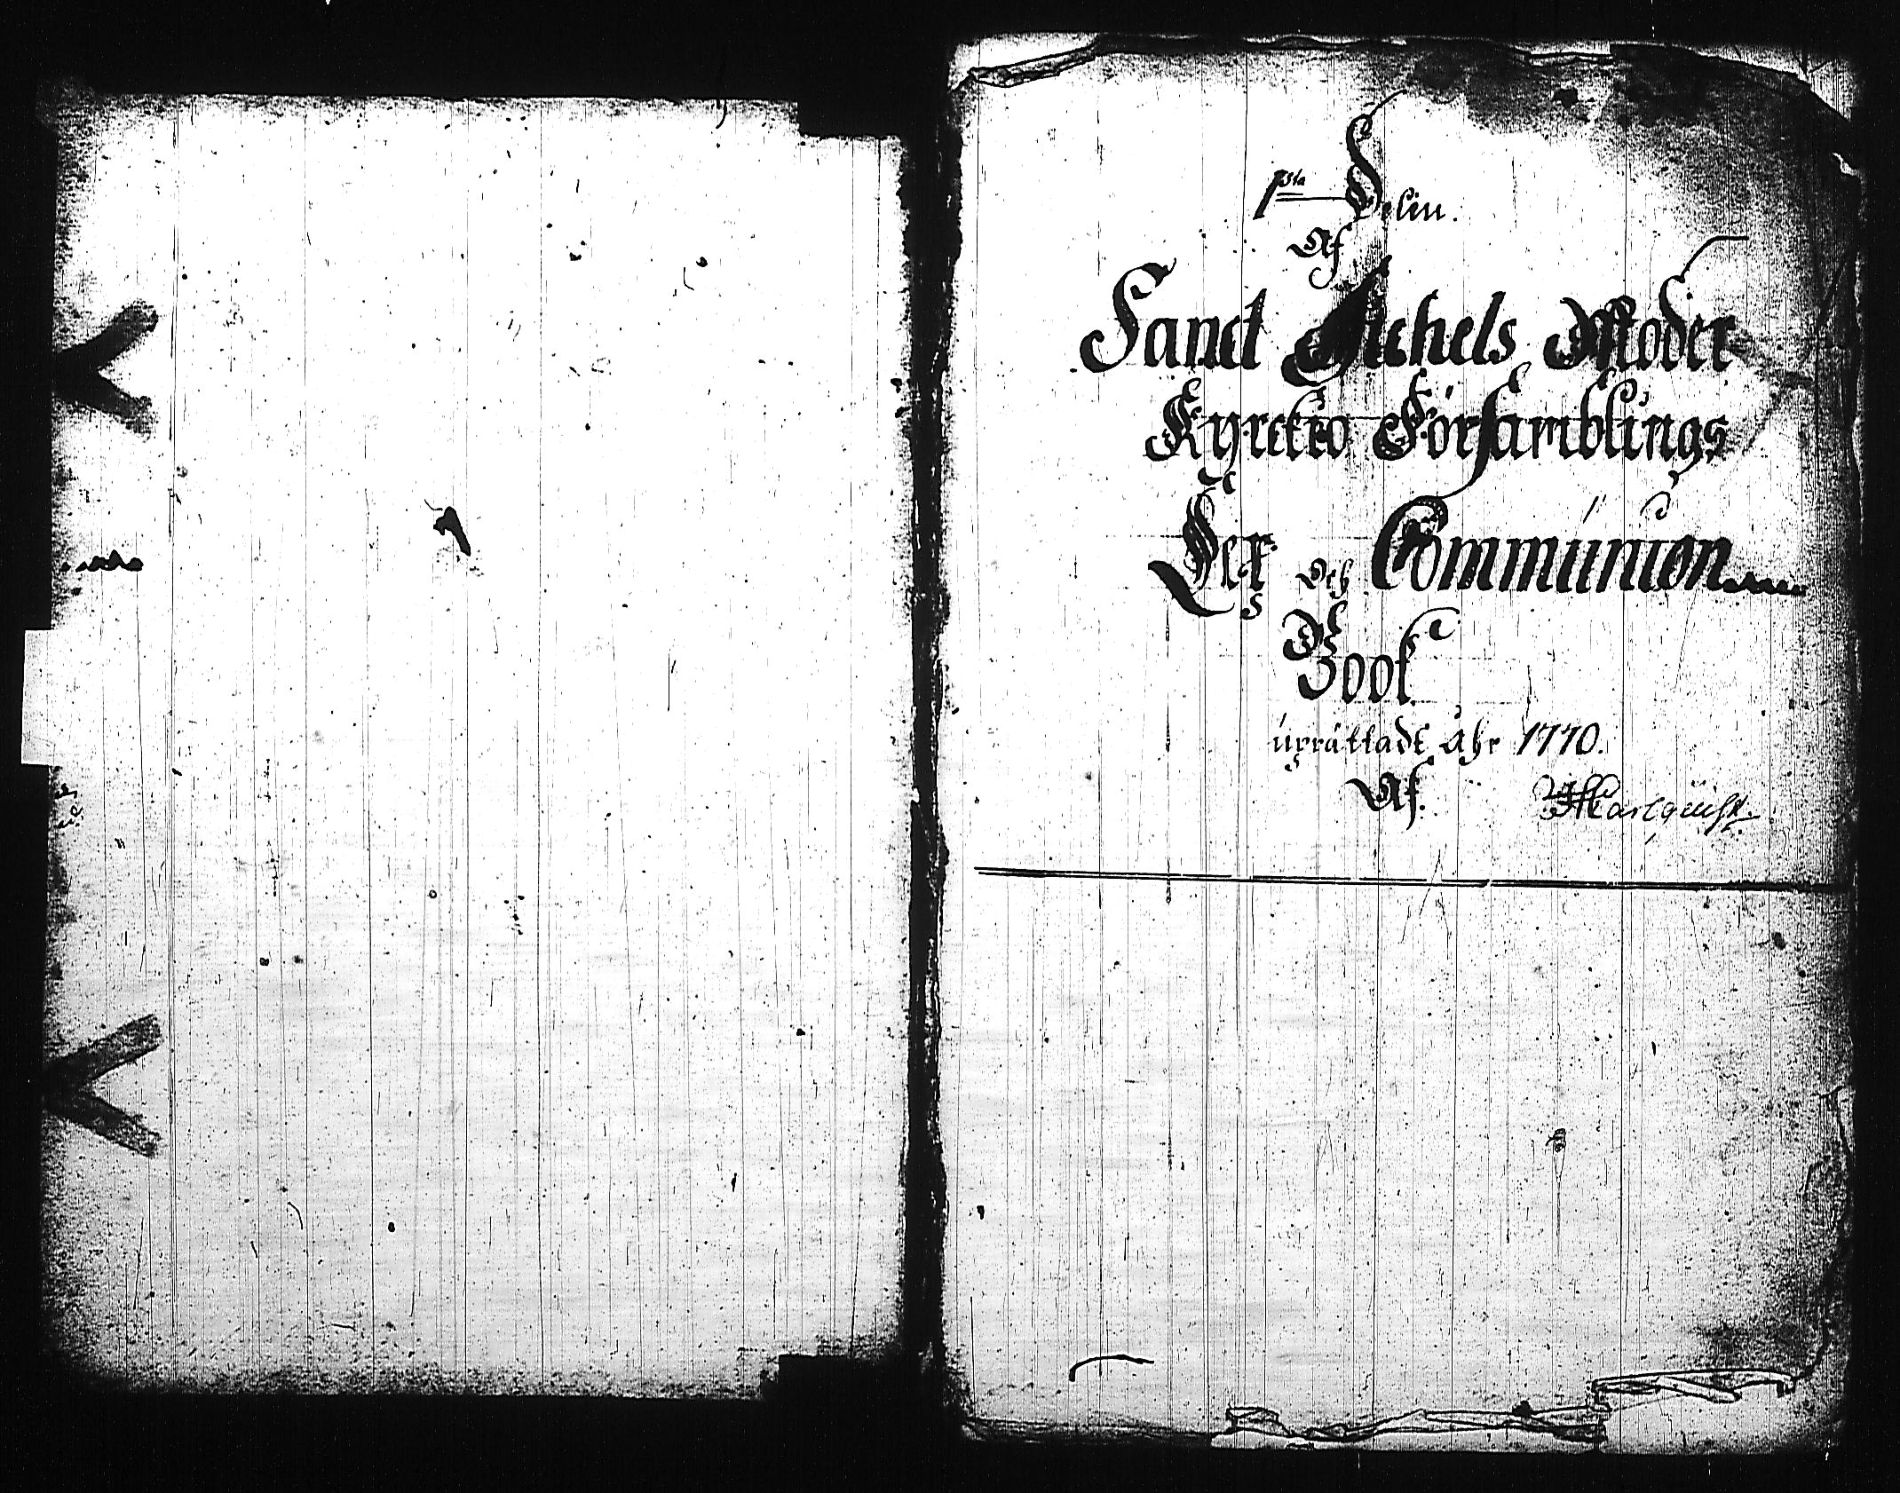 1sta Delen.
Af
Sanct Michels Moder
Kyrckio Församblings
Lex och Communion
Book
uprättadt åhr 1770.
Af.